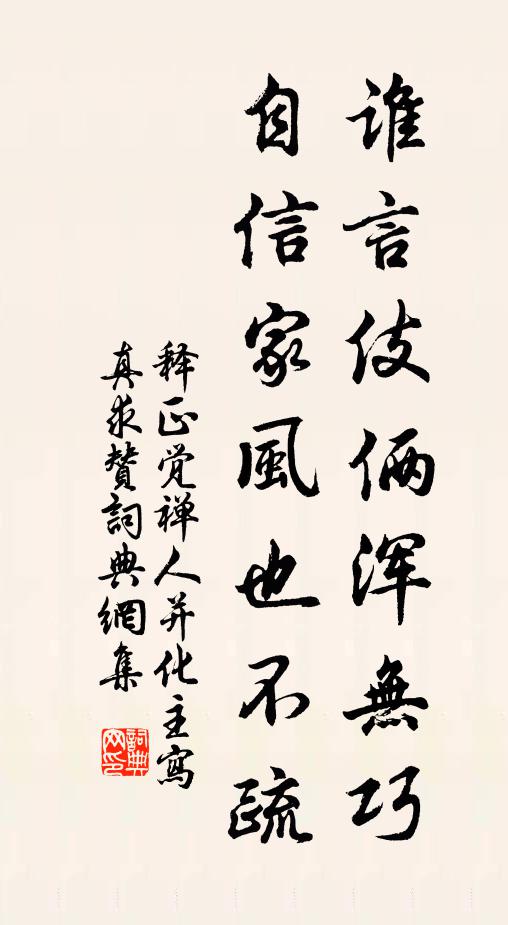 谁言伎俩浑無巧
自信家風也不疏
释正觉禅人并化主寫
真求贊詞典網集
詞典网印